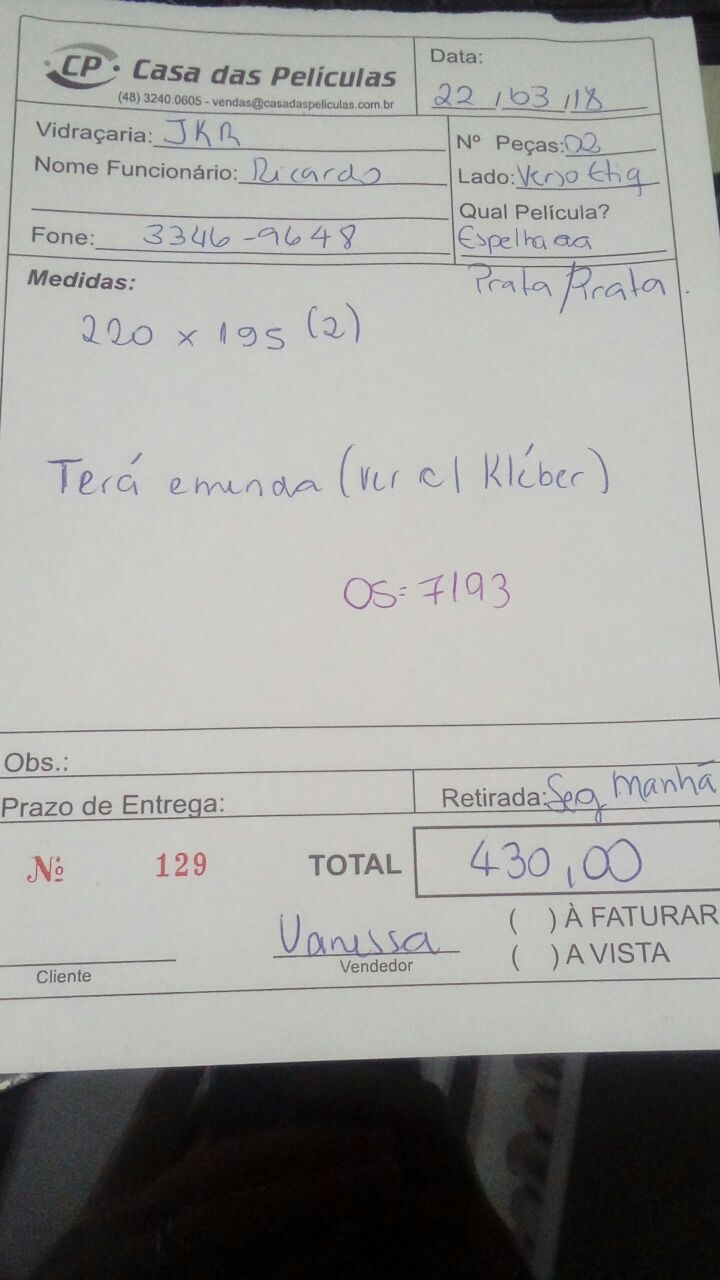 CP Casa das Películas
(48) 3240.0605 - vendas@casadaspeliculas.com.br
Data:
22 / 03 / 18
Vidraçaria: JKR
Nome Funcionário: Ricardo
Fone: 3346-9648
Nº Peças: 02
Lado: Verso Etiq
Qual Película?
Espelhada
Prata/Prata.
Medidas:
220 x 195 (2)
Terá emenda (ver c/ Kléber)
OS=7193
Obs.:
Prazo de Entrega:
Retirada: Seg Manhã
Nº 129
TOTAL 430,00
( ) À FATURAR
( ) A VISTA
Vanessa
Cliente
Vendedor